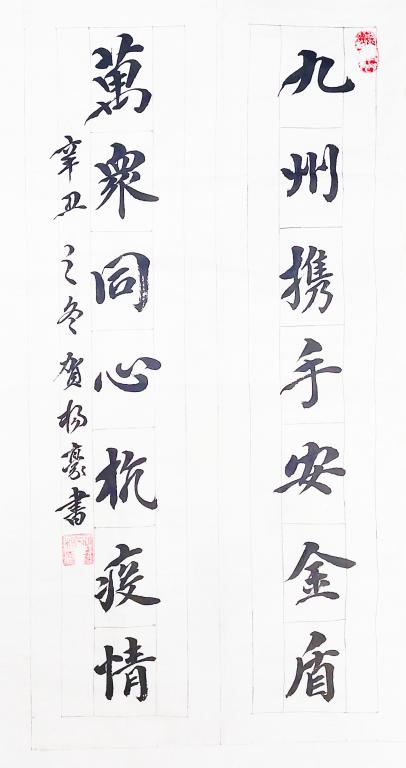 九州携手安金盾
萬衆同心抗疫情
辛丑之冬賀杨豪書